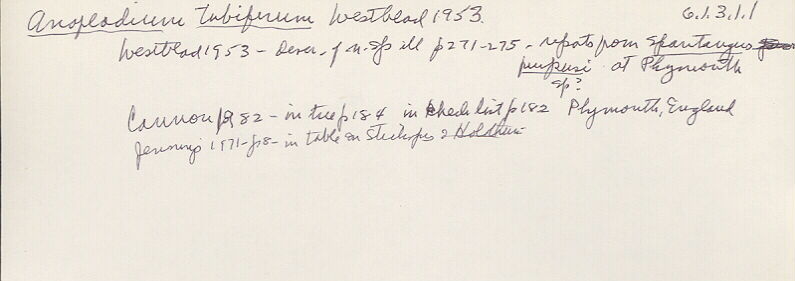 Anoplodium Tubiferum Westblad 1953. 6.1.3.1.1
Westblad 1953 - Descr. of n. sp ill p271-275 - reports from Spantangus
purpusi at Plymouth
sp?
Cannon 1982 - in tree p184 in checklist p182 Plymouth, England
Jennings 1971 - p8 - in table on Stichopus &